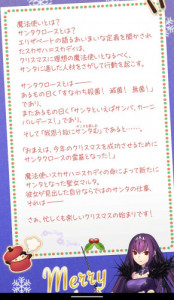 魔法使いとは？
サンタクロースとは？
エリザベートの語るあいまいな定義を聞かされ
たスカサハ=スカディは、
クリスマスに理想の魔法使いとなるべく、
サンタに適した人材をさがして行動を起こす。
サンタクロースとは───
あるもの曰く「すなわち殺意！ 滅菌！ 無菌！」
であり、
またあるもの曰く「サンタといえばサンバ、カーニ
バルデース！」であり、
そして「牧場の姉にサンタむ」であると……。
「おまえは、今年のクリスマスを成功させるために
サンタクロースの霊基となった！」
魔法使いスカサハ=スカディの命によって新たに
サンタとなった聖女マルタ。
彼女が見出した自分ならではのサンタの仕事、
それは───
さあ、忙しくも楽しいクリスマスの始まりです！
Merry